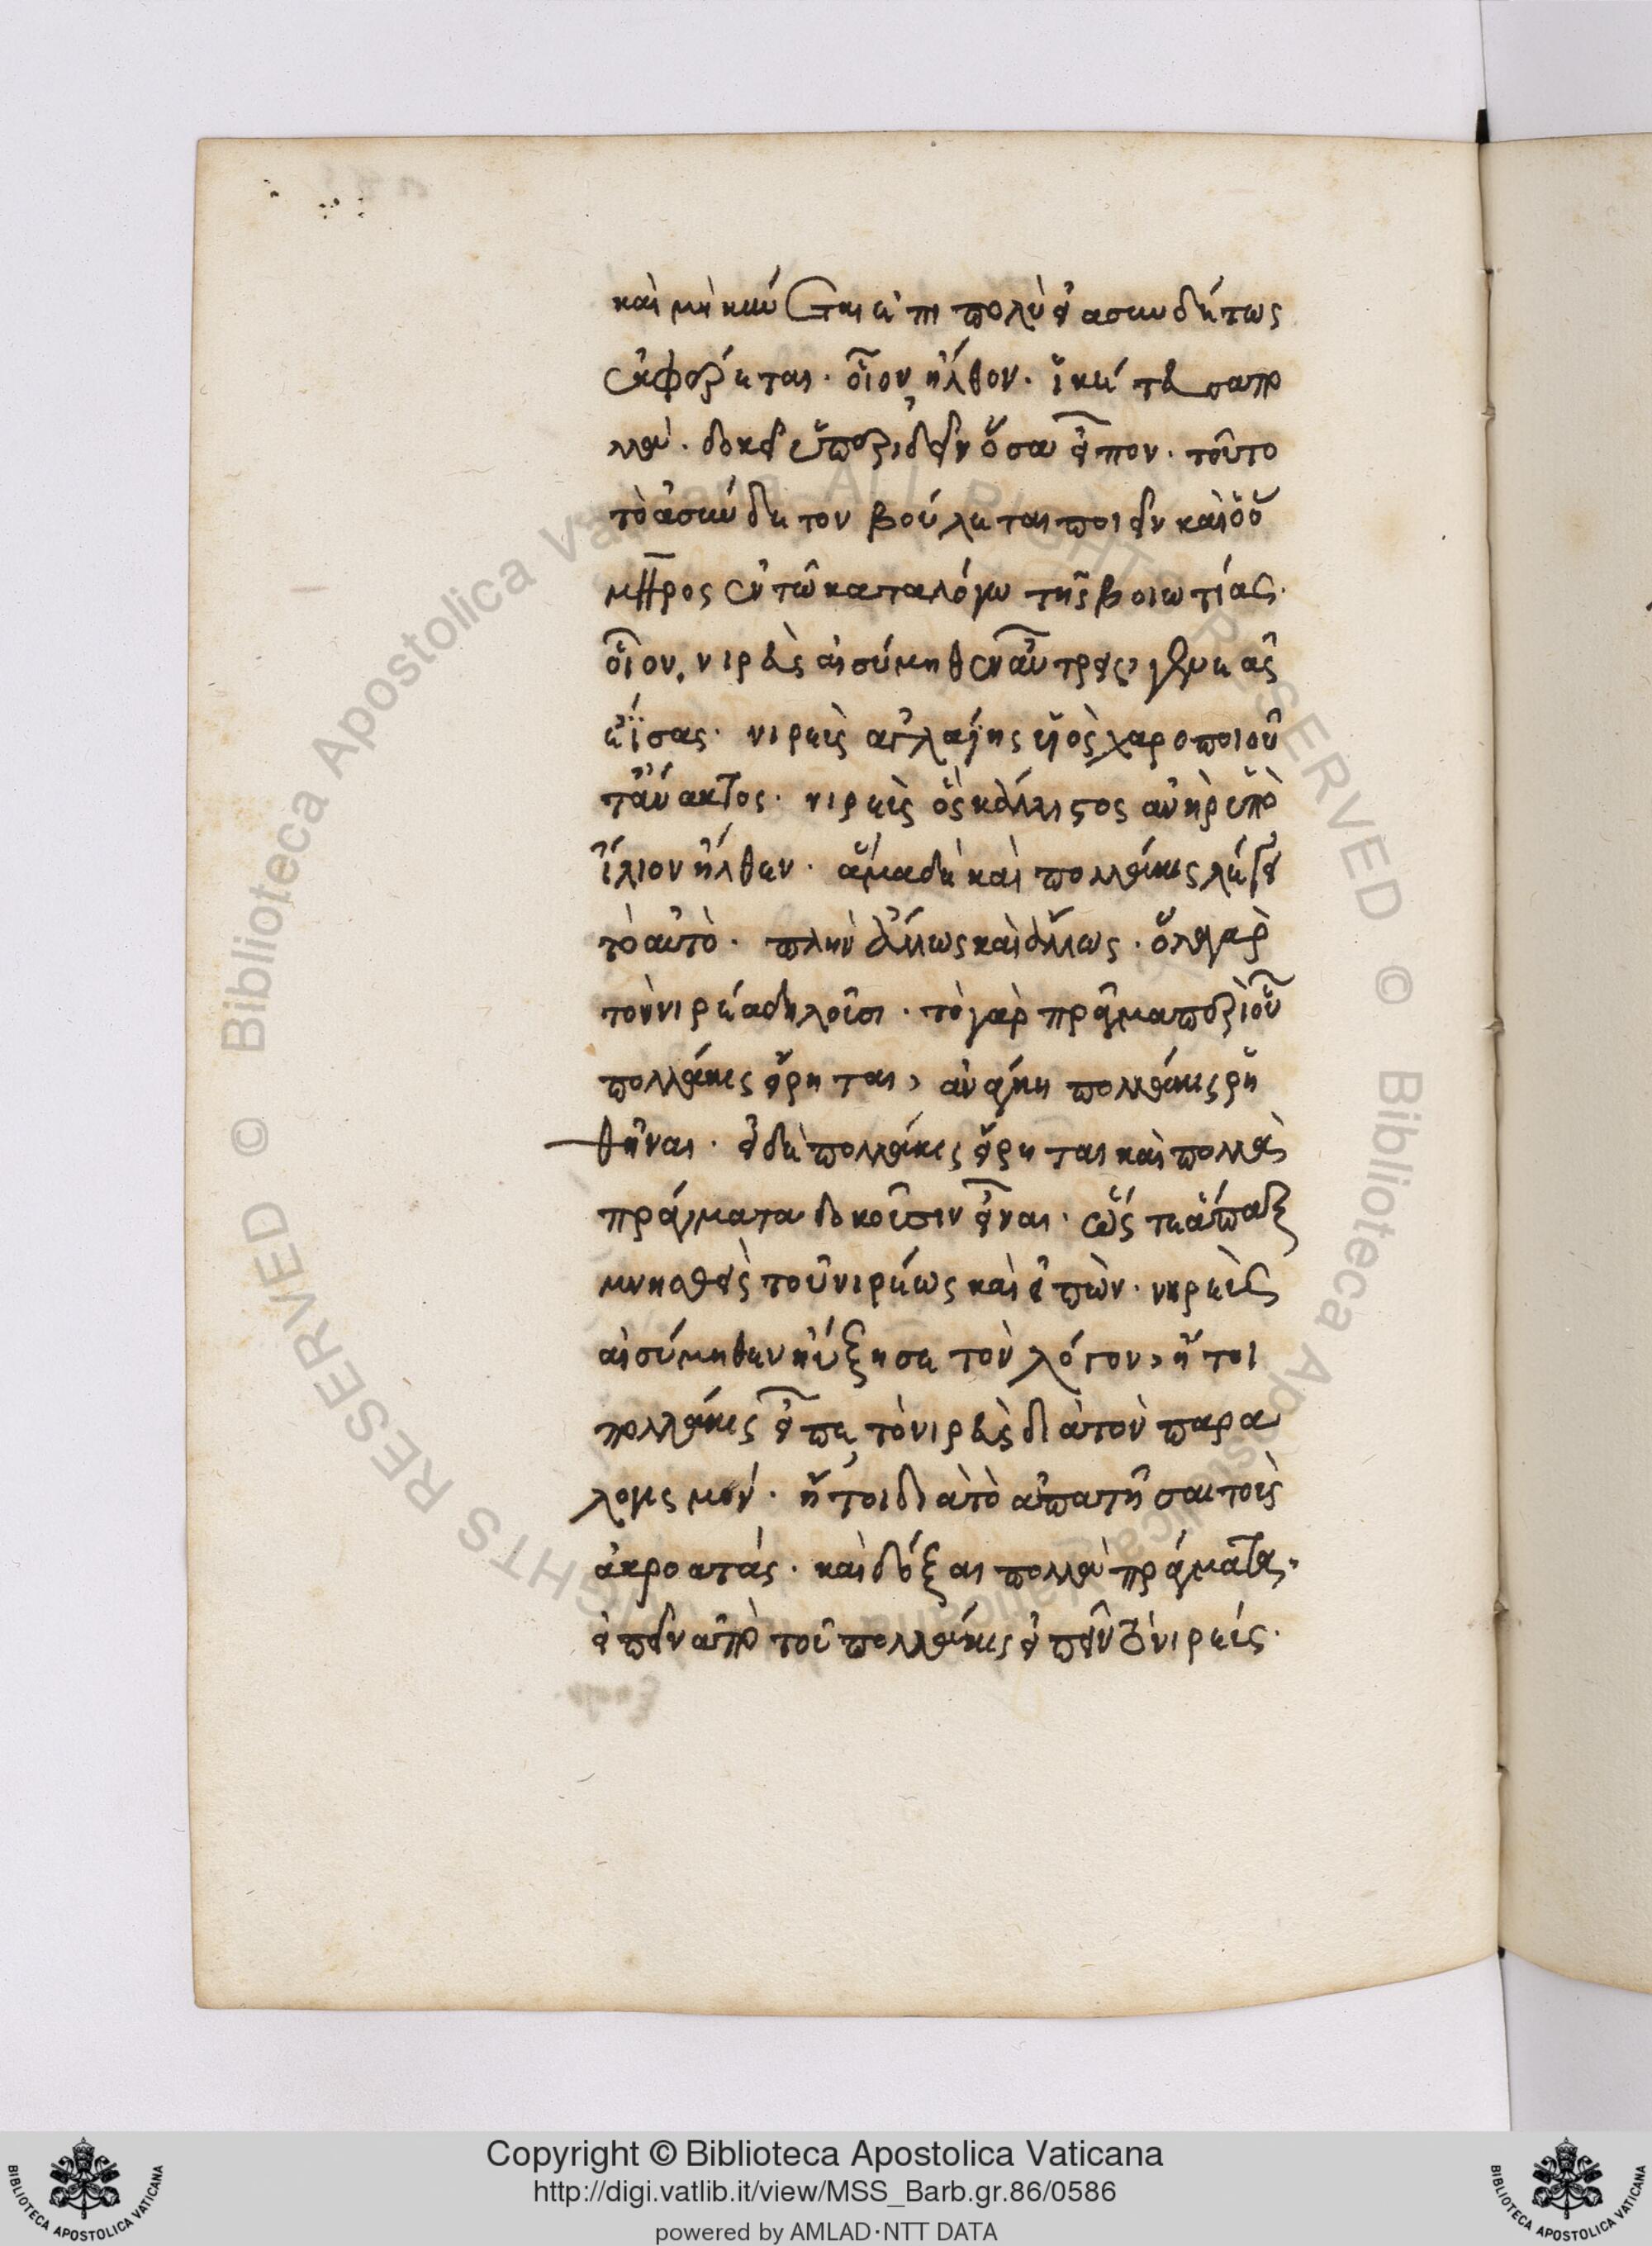 καὶ μὴκύνεται ἐπιπολὺ εἰ ἀσυνδήτως
ἐκφέρεται. οἷον ἦλθον. ἱκέτευσα πο
λλά. δοκεῖ ὑπεριδεῖν ὅσα εἶπον. τοῦτο
τὸ ἀσύνδετον βούλεται ποιεῖν καὶ ὁ ὅ
μηρος ἐν τῶ καταλόγω τῆς βοιωτίας.
οἷον, νιρεὺς αἰσύμηθεν ἄν τρεῖς γλυκᾶς
ἐΐσας. νιρεὺς ἀγλαΐης υἱὸς χαροποιοῦ
τ' ἄνακτος. νιρεὺς ὃς κάλλιστος ἀνὴρ ὑπὸ
ἴλιον ἦλθεν. ἅμα δὲ καὶ πολλάκις λέγει
τὸ αὐτὸ. πλὴν ἄλλως καὶ ἄλλως. ὅλα γὰρ
τὸν νιρέα δηλοῦσι. τὸ γὰρ πρᾶγμα περὶ οὗ
πολλάκις εἴρηται, ἀνάγκη πολλάκις ῥη
θῆναι. εἰ δὲ πολλάκις εἴρηται καὶ πολλὰ
πράγματα δοκοῦσιν εἶναι. ὥστε ἅπαξ
μνησθεὶς τοῦ νιρέως καὶ εἰπὼν. νηρεὺς
αἰσύμηθεν ηὔξησε τὸν λόγον, ἤτοι
πολλάκις εἶπε τὸ νιρεὺς διὰ τὸν παρα
λογισμόν. ἤτοι διὰ τὸ ἀπατῆσαι τοὺς
ἀκροατάς. καὶ δόξαι πολλὰ πράγματα.
εἰπεῖν ἀπὸ τοῦ πολλάκις εἰπεῖν τὸ νιρεύς.
Copyright © Biblioteca Apostolica Vaticana
http://digi.vatlib.it/view/MSS_Barb.gr.86/0586
powered by AMLAD·NTT DATA